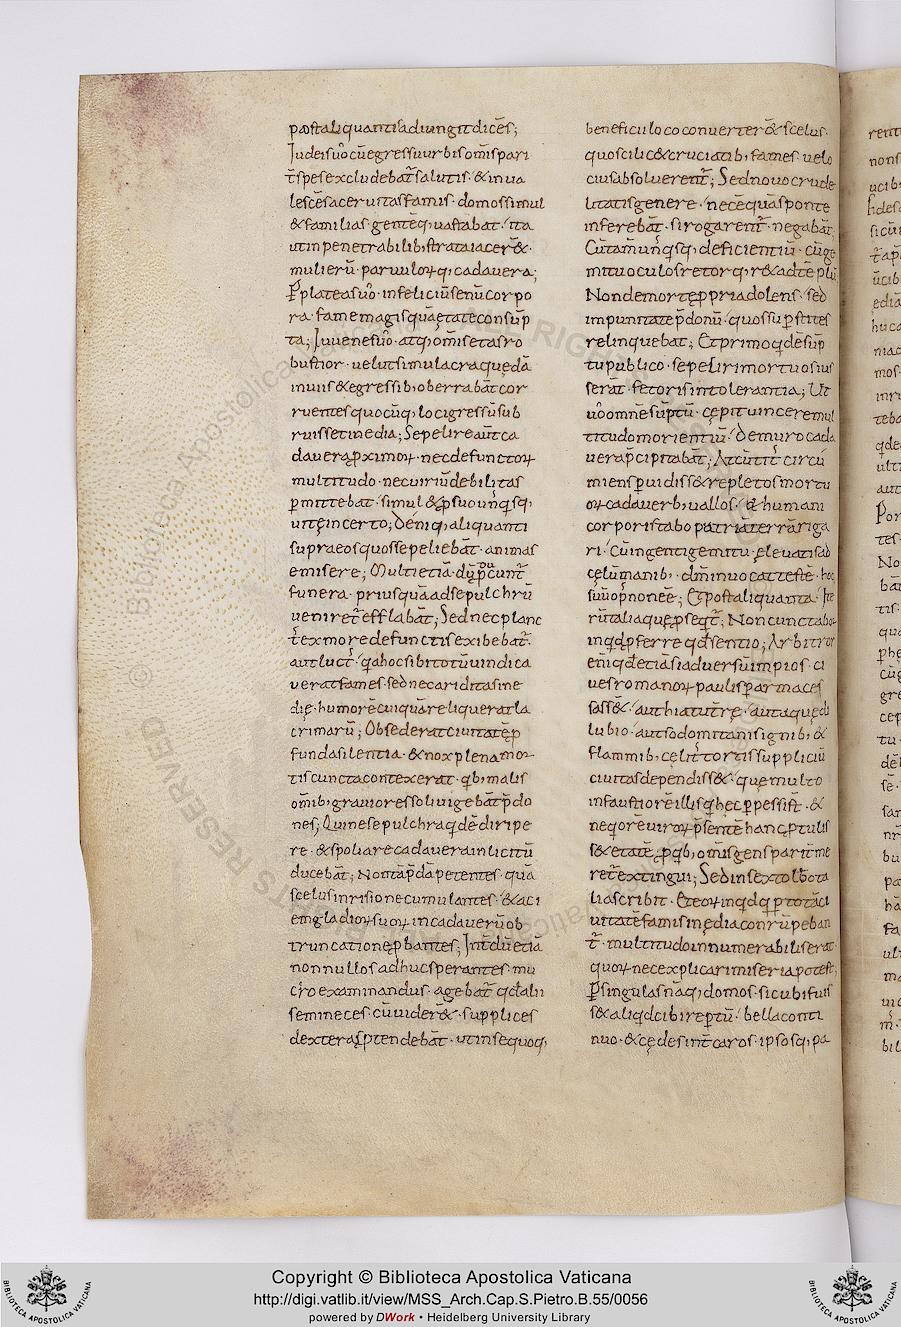 postaliquantisadiungitdicēs;
Iudeisu̅o cūegressuurbisom̅ispari
t̅spesexcludebat̅salutis· &inua
lescēsaceruitasfamis· domossimul
&familias·gentēq;uastabat· ita
utinpenetrabilib;strataiacer&·
mulierū·paruuloꝝq;cadauera;
Pplateasu̅o·infeliciūsenūcorpo
ra·famemagisquāetateconsūp
ta; Iuuenesu̅o·atq;om̅isetasro
bustior·uelutsimulacraquedā
inuiis&egressib;oberrabāt cor
ruentesquocūq;locigressūsub
ruissetinedia; Sepelireaūtca
dauerap̱ximoꝝ·necdefunctoꝝ
multitudo·necuiriūdebilitas
p̱mittebat·simul&p̱suounq̇sq;
uitęincerto; Deniq;aliquanti
supraeosquossepeliebāt·animas
emisere; Multietiā·dūp̱cunt̅
funera·priusquāadsepulchrū
ueniret̅efflabāt; Sednecplanc
t̅exmoredefunctisexibebat̅·
autluct̅·qahocsibitotūuindica
ueratfames·sednecariditasine
dię·humorēcuiquāreliqueratla
crimarū; Obsederatciuitatēp̱
fundasilentia·&noxplenamor
tiscunctacontexerat·qb;malis
om̅ib;grauioressoliuigebātp̱do
nes; Quinesepulchraqdēdiripe
re·&spoliarecadauerainlicitū
ducebat; Nomāp̄dāpetentes·quā
scelusinrisionecumulantes·&aci
emgladioꝝsuoꝝincadauerūob
truncationep̱bantes; Int̄dūetiā
nonnullosadhucsperantes·mu
cr̅oexaminandus·agebat̅·qdalii
semineces·cūuider&·supplices
dexterasp̱tendebāt·utinsequoq;
beneficiilococonuerter&scelus·
quoscilic&cruciatib;fames·uelo
ciusabsoluerent̅; Sednouocrude
litatisgenere·necēquāsponte
inferebāt·sirogarent̅·negabāt;
Cūtam̄unq̇sq;deficientiū·cūge
mituoculosretorq;r&adtēplū
Nondemortep̱priadolens·sed
impunitatep̄donū·quossup̱stites
relinquebat; Etprimoqdēsūp
tupublico·sepelirimortuosius
serāt·fetorisintolerantia; Ut
uoomnēsūptū·cępituinceremul
titudomorientiū·Demurocada
uerap̄cipitabāt; Atcūtit̅circū
miensp̱uidiss&repletosmortu
oꝝcadauerib;uallos·&humani
corporistabopatriāterrārigа
ri·Cūingentigemitu·eleuatisad
cęlūmanib;·
sūūopnoneē; Etpostaliquanta·Ite
rūtaliaquęp̱seqt̅; Noncunctabor
inqdp̱ferreqdsentio; Arbitror
en̄iqdetiāsiaduersūimpios·ci
uesromanoꝝpaulisp̱armaces
sass&·authiatut̄rę·autaquędi
lubio·autsodomitanisignib;&
flammib;cęlit̅tortissuppliciū
ciuitasdependiss&·quęmulto
infaustiorēillisqhecp̱pessist̅·&
neqorēuiroꝝp̄sentēhancp̱tulis
s&etatē·p̱qb;om̅isgensparit̅me
ret̅extingui; Sedinsextolibtota
liascribit·Eteoꝝinqdqp̱totāci
uitatēfamisinędiaconrūpeban
t̅·multitudoinnumerabiliserat·
quoꝝnecexplicarimiseriapotest;
Psingulasnāq;domos·sicubifuis
s&aliqdcibirep̱tū·bellaconti
nuo·&cędesint̄caros·ipsosq;pa
Copyright © Biblioteca Apostolica Vaticana
http://digi.vatlib.it/view/MSS_Arch.Cap.S.Pietro.B.55/0056
powered by DWork • Heidelberg University Library